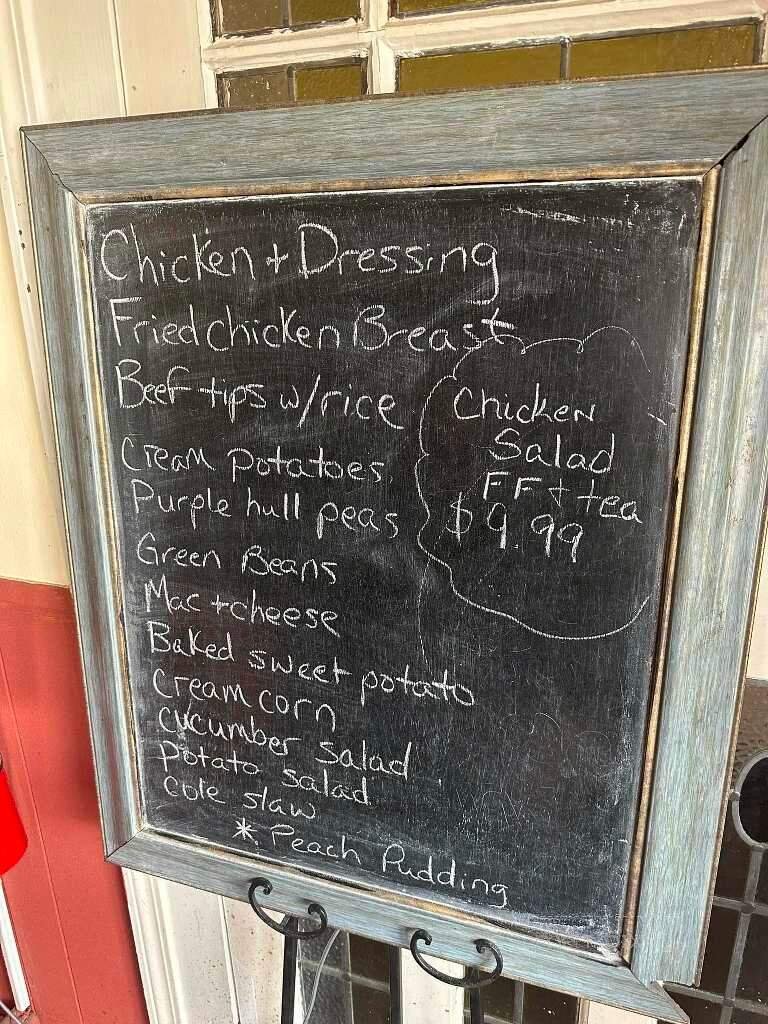 Chicken + Dressing
Fried chicken Breast
Beef tips w/rice
Cream potatoes
Purple hull peas
Green Beans
Mac + cheese
Baked sweet potato
Cream corn
Cucumber salad
Potato salad
Cole slaw
* Peach Pudding
Chicken
Salad
FF + tea
$9.99